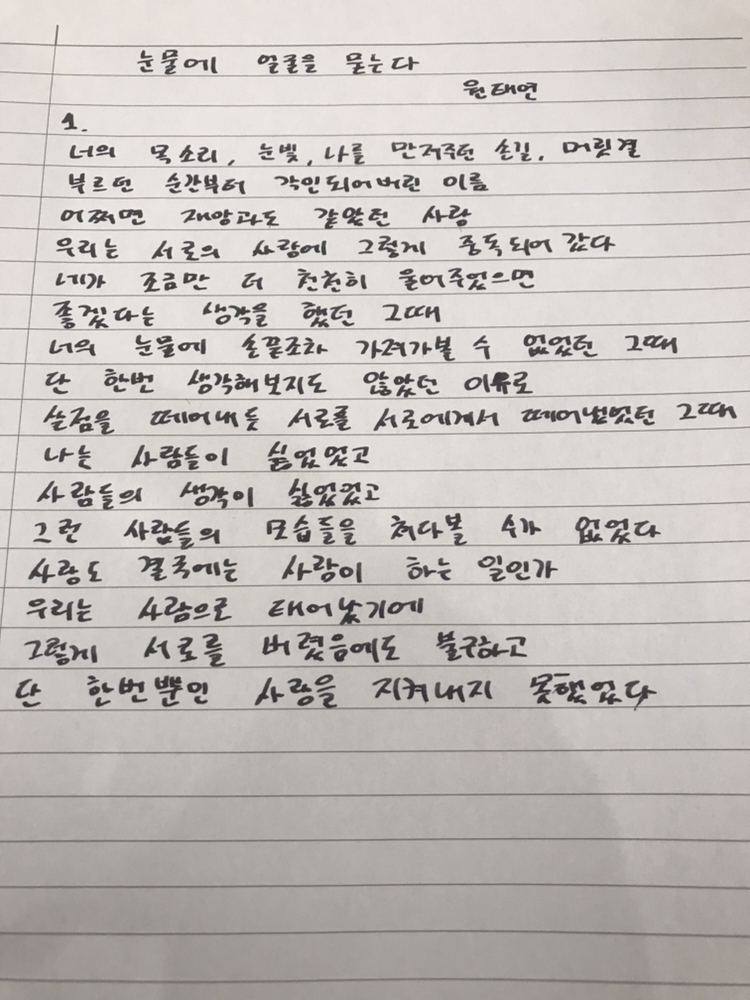 눈물에 얼굴을 묻는다
원태연
1.
너의 목소리, 눈빛, 나를 만져주던 손길, 머릿결
부르던 순간부터 각인되어버린 이름
어쩌면 재앙과도 같았던 사랑
우리는 서로의 사랑에 그렇게 중독되어 갔다
네가 조금만 더 천천히 울어주었으면
좋겠다는 생각을 했던 그때
너의 눈물에 손끝조차 가져가볼 수 없었던 그때
단 한번 생각해보지도 않았던 이유로
살점을 떼어내듯 서로를 서로에게서 떼어냈었던 그때
나는 사람들이 싫었었고
사람들의 생각이 싫었었고
그런 사람들의 모습들을 쳐다볼 수가 없었다
사랑도 결국에는 사람이 하는 일인가
우리는 사람으로 태어났기에
그렇게 서로를 버렸음에도 불구하고
단 한번뿐인 사랑을 지켜내지 못했었다